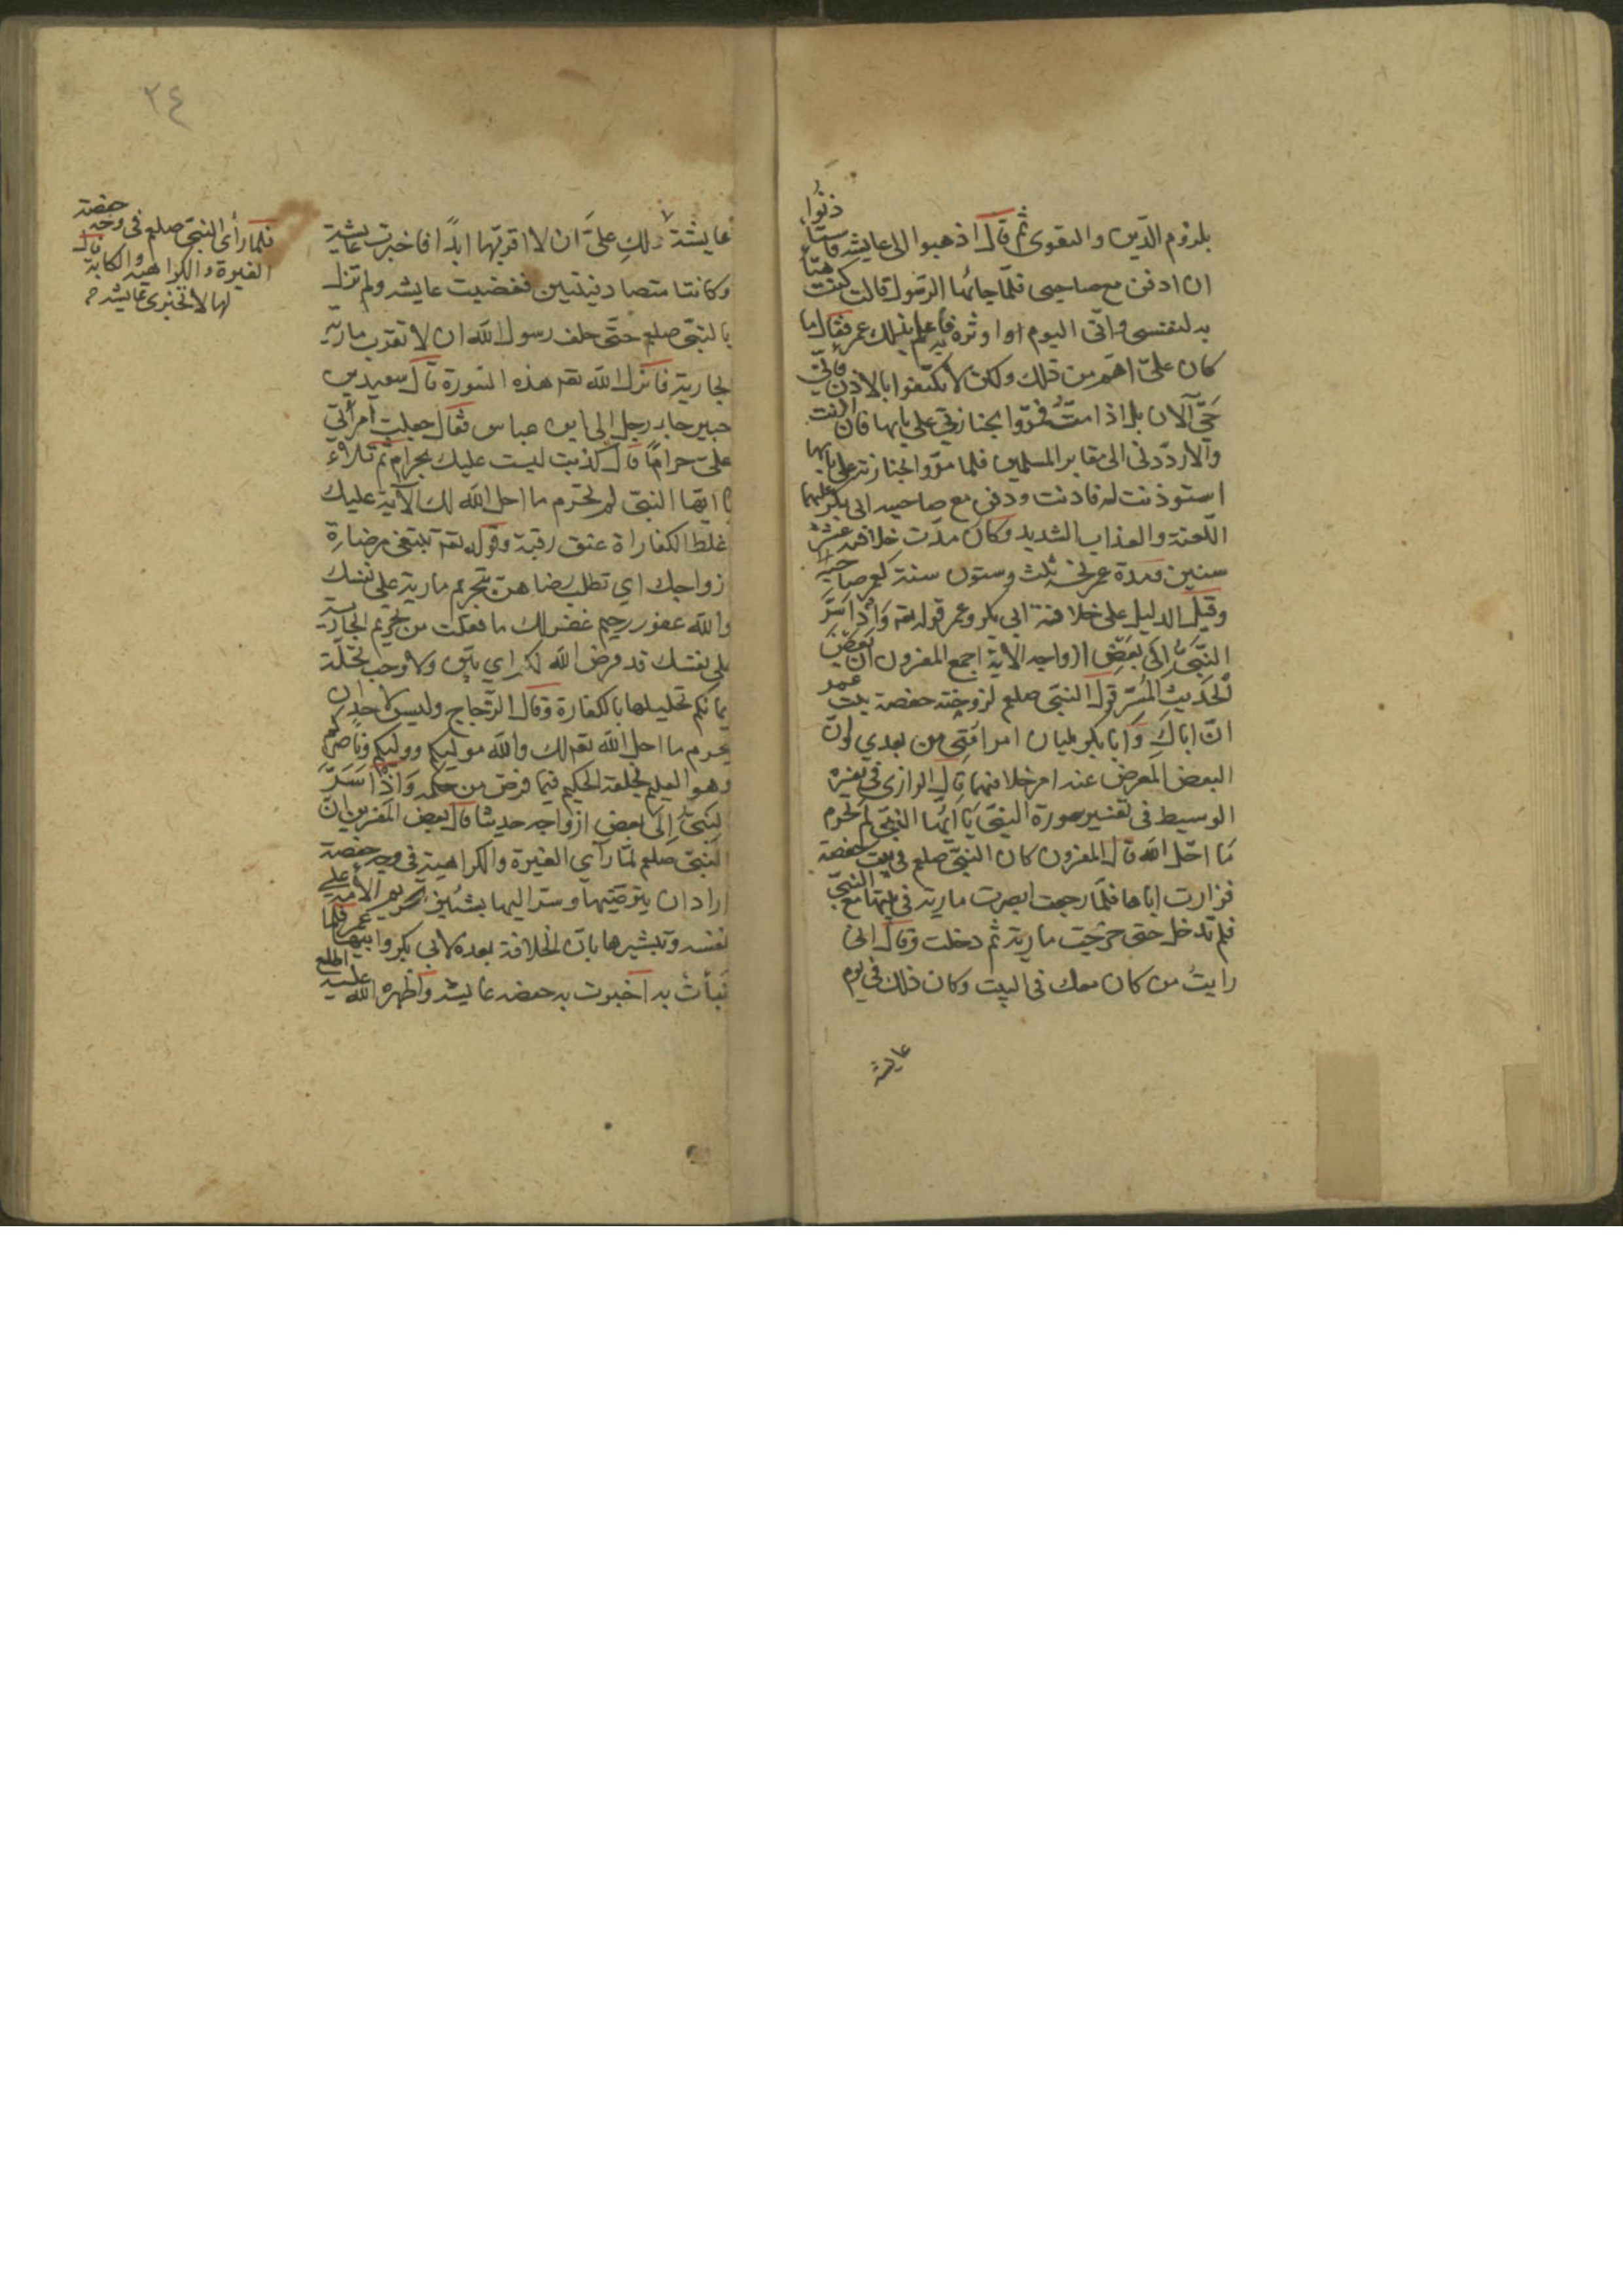 بلزوم الدين والتقوى ثم قال اذهبوا الى عايشه فاستأذنوا
ان ادفن مع صاحبى فلما جائها الرسول قالت كنت هيأته
به لنفسى وانى اليوم اوثره فأعلم بذلك عمر فقال ما
كان علىّ اهم من ذلك ولكن لا تكتفوا بالاذن فانّى
حىّ الآن بل اذا متّ فمرّوا بجنازتى على بابها فان اذنت
والا ردّونى الى مقابر المسلمين فلما مرّوا بجنازته على بابها
استوذنت له فاذنت ودفن مع صاحبيه ابى بكر عليهما
اللعنة والعذاب الشديد وكان مدّت خلافته عشرة
سنين ومدة عمر ثلث وستون سنة كعمر صاحبيه
وقيل الدليل على خلافة ابى بكر وعمر قوله تعم وَاِذْ اَسَرَّ
النَّبِىُّ اِلَى بَعْضِ ازواجه الآية اجمع المفسرون ان بعض
الحديث المُسَرّ قول النبى صلعم لزوجته حفصة بنت عمر
انّ اباكِ وَابا بكر يليان امر امّتى من بعدي لانّ
البعض المعرض عنه امر خلافتهما قال الرازى فى تفسيره
الوسيط فى تفسير سورة النبى يَا اَيُّهَا النَّبِىُّ لِمَ تُحَرِّم
مَا احَلّ الله قال المفسرون كان النبى صلعم فى بيت حفصة
فزارت اباها فلمّا رجعت ابصرت مارية فى بيتها مع النبىّ
فلم تدخل حتى خرجت مارية ثم دخلت وقال انى
رايتُ من كان معك فى البيت وكان ذلك فى يوم
عايشة
٣٤
عايشة ذلكِ علىّ ان لا اقربها ابدًا فاخبرت عايشة
وكانتا متصادقتين فغضبت عايشه ولم تزل
بالنبى صلعم حتّى حلف رسول الله ان لا تقرب مارية
لجارية فانزل الله تعم هذه السورة قال سعيد بن
جبير جاء رجل الى ابن عباس فقال جعلت امرأتى
علىّ حرامًا قال كذبت ليست عليك بحرام ثم تلا
يا ايّها النبى لم تحرم ما احل الله لك الآية عليك
غلظ الكفاراة عتق رقبة وقوله تعم تبتغى مرضات
زواجك اي تطلب رضاهن بتحريم مارية على نفسك
والله غفور رحيم غفر لك ما فعلت من تحريم الجارية
على نفسك قد فرض الله لكم اي بيّن ولا وجب تحلّة
يمانكم تحليلها بالكفارة وقال الزجاج وليس لاحد ان
يحرم ما احل الله تعم لك والله موليكم ووليكم وناصركم
وهو العليم بخلقه الحكيم فيما فرض من حكمه وَاِذْ اَسَرَّ
لنبىّ اِلى بعض ازواجه حديثا قال بعض المفسرين انّ
النبى صلعم لمّا رآى الغيرة والكراهية فى وجه حفصة
اراد ان يترضيها وسرّ اليها بشيئين تحريم الأمة على
نفسه وتبشيرها بان الخلافة بعده لابى بكر وابيها عمر فلما
نبأت به اخبرت به حفصه عايشه واظهره الله عليه اطلع
فلما رأى النبى صلعم فى وجه حفصة
الغيرة والكراهية والكابة قال
لها لا تخبرى عايشه